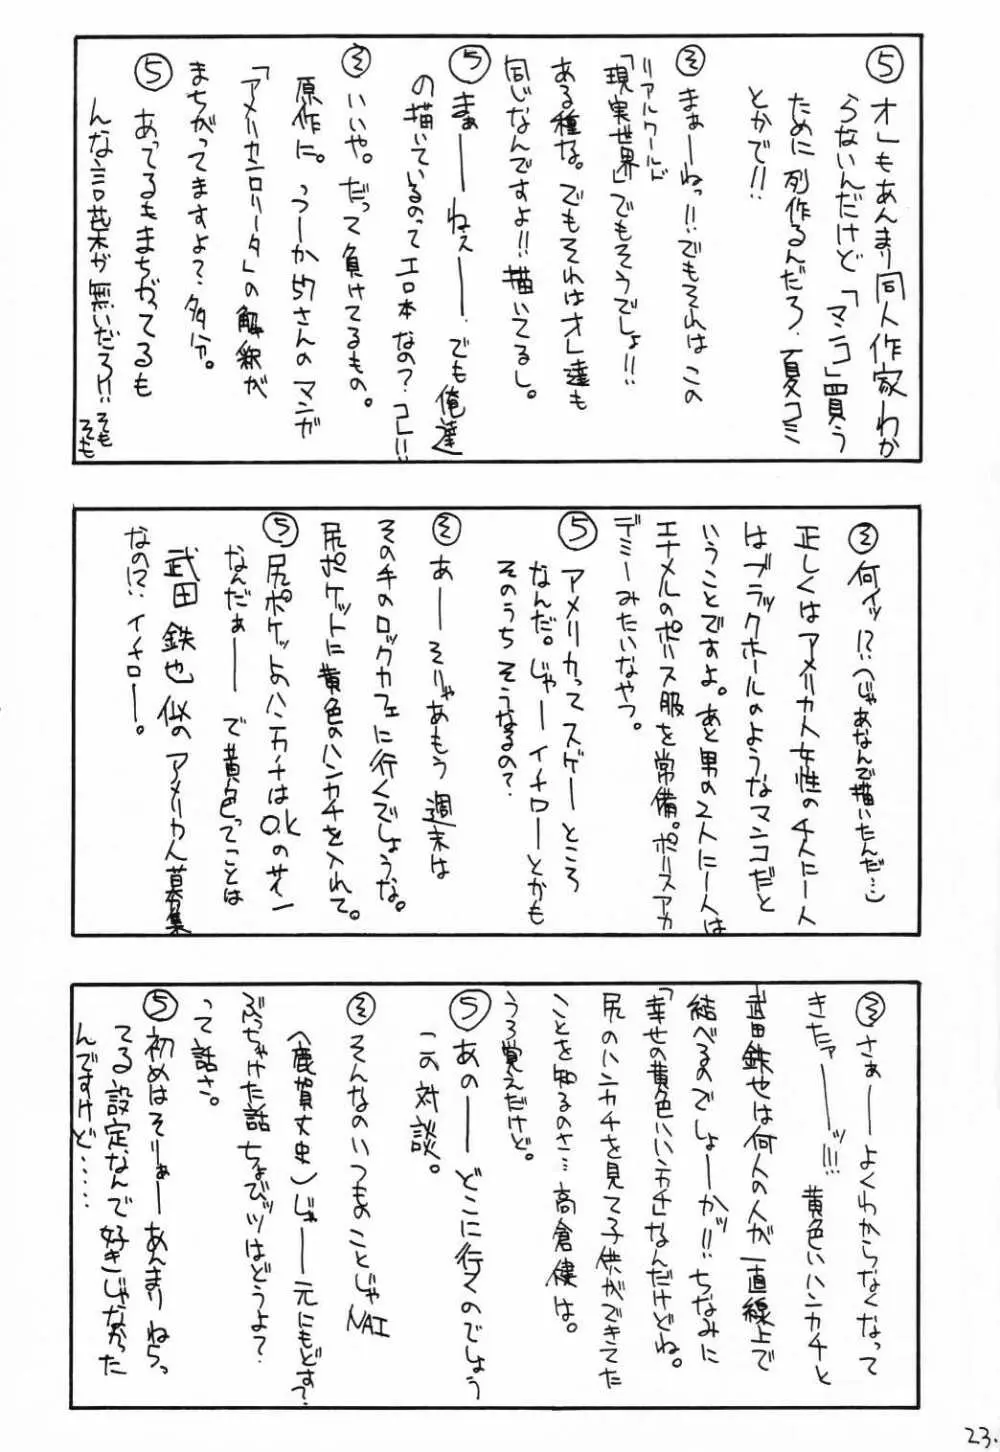 ⑤オレもあんまり同人作家わか
らないんだけど「マンコ」買う
ために列作るんだろ・夏コミ
とかで!!
㋛まぁーねっ!!でもそれはこの
リアルワールド
「現実世界」でもそうでしょ!!
ある種な。でもそれはオレ達も
同じなんですよ!!描いてるし。
⑤まぁーーねぇーー.でも俺達
の描いているのってエロ本なの?コレ!!
㋛いいや。だって負けてるもの。
原作に。つーか57さんのマンガ
「アメリカンロリータ」の解釈が
まちがってますよ?多分。
⑤あってるもまちがってるも
んな言葉が無いだろ!!そも
そも
㋛何ィッ!?(じゃあなんで描いたんだ…)
正しくはアメリカ人女性の千人に一人
はブラックホールのようなマンコだと
いうことですよ。あと男の2人に一人は
エナメルのポリス服を常備。ポリスアカ
デミーみたいなやつ。
⑤アメリカってスゲーところ
なんだ。じゃーイチローとかも
そのうちそうなるの?
㋛あーーそりゃあもう週末は
その手のロックカフェに行くでしょうな。
尻ポケットに黄色のハンカチを入れて。
⑤尻ポケットのハンカチはO.Kのサイン
なんだぁーーで黄色ってことは
武田鉄也似のアメリカ人募集
なの!?イチロー。
㋛さぁーーよくわからなくなって
きたァーーッ!!!黄色いハンカチと
武田鉄也は何人の人が一直線上で
結べるのでしょーかッ!!ちなみに
「幸せの黄色いハンカチ」なんだけどね。
尻のハンカチを見て子供ができてた
ことを知るのさ…高倉健は。
うろ覚えだけど。
⑤あのーーどこに行くのでしょう
この対談。
㋛そんなのいつものことじゃNAI
(鹿賀丈史)じゃーー元にもどす?
ぶっちゃけた話ちょびッツはどうよ?
って話さ。
⑤初めはそりぁーあんまりねらっ
てる設定なんで好きじゃなかった
んですけど……
23.